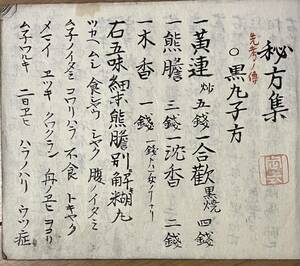 秘方集
先考ノ傳
○黒丸子方
一黄連 炒 五錢 一合歡 黒焼 四錢
一熊膽 三錢 一沈香 二錢
一木香 一錢
右五味細末熊膽別解糊丸
ツカヘ ムシ 食シヤウ シヤク 腹ノイタミ
ムネノイタミ コワリハラ 不食 トキヤク
メマイ エツキ クワクラン 舟ノヱヒ ヨコリ
ムネワルキ 二日ヱヒ ハラノハリ ウツ症